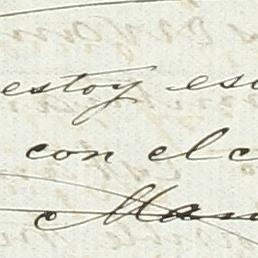 estoy es
con el c
Man